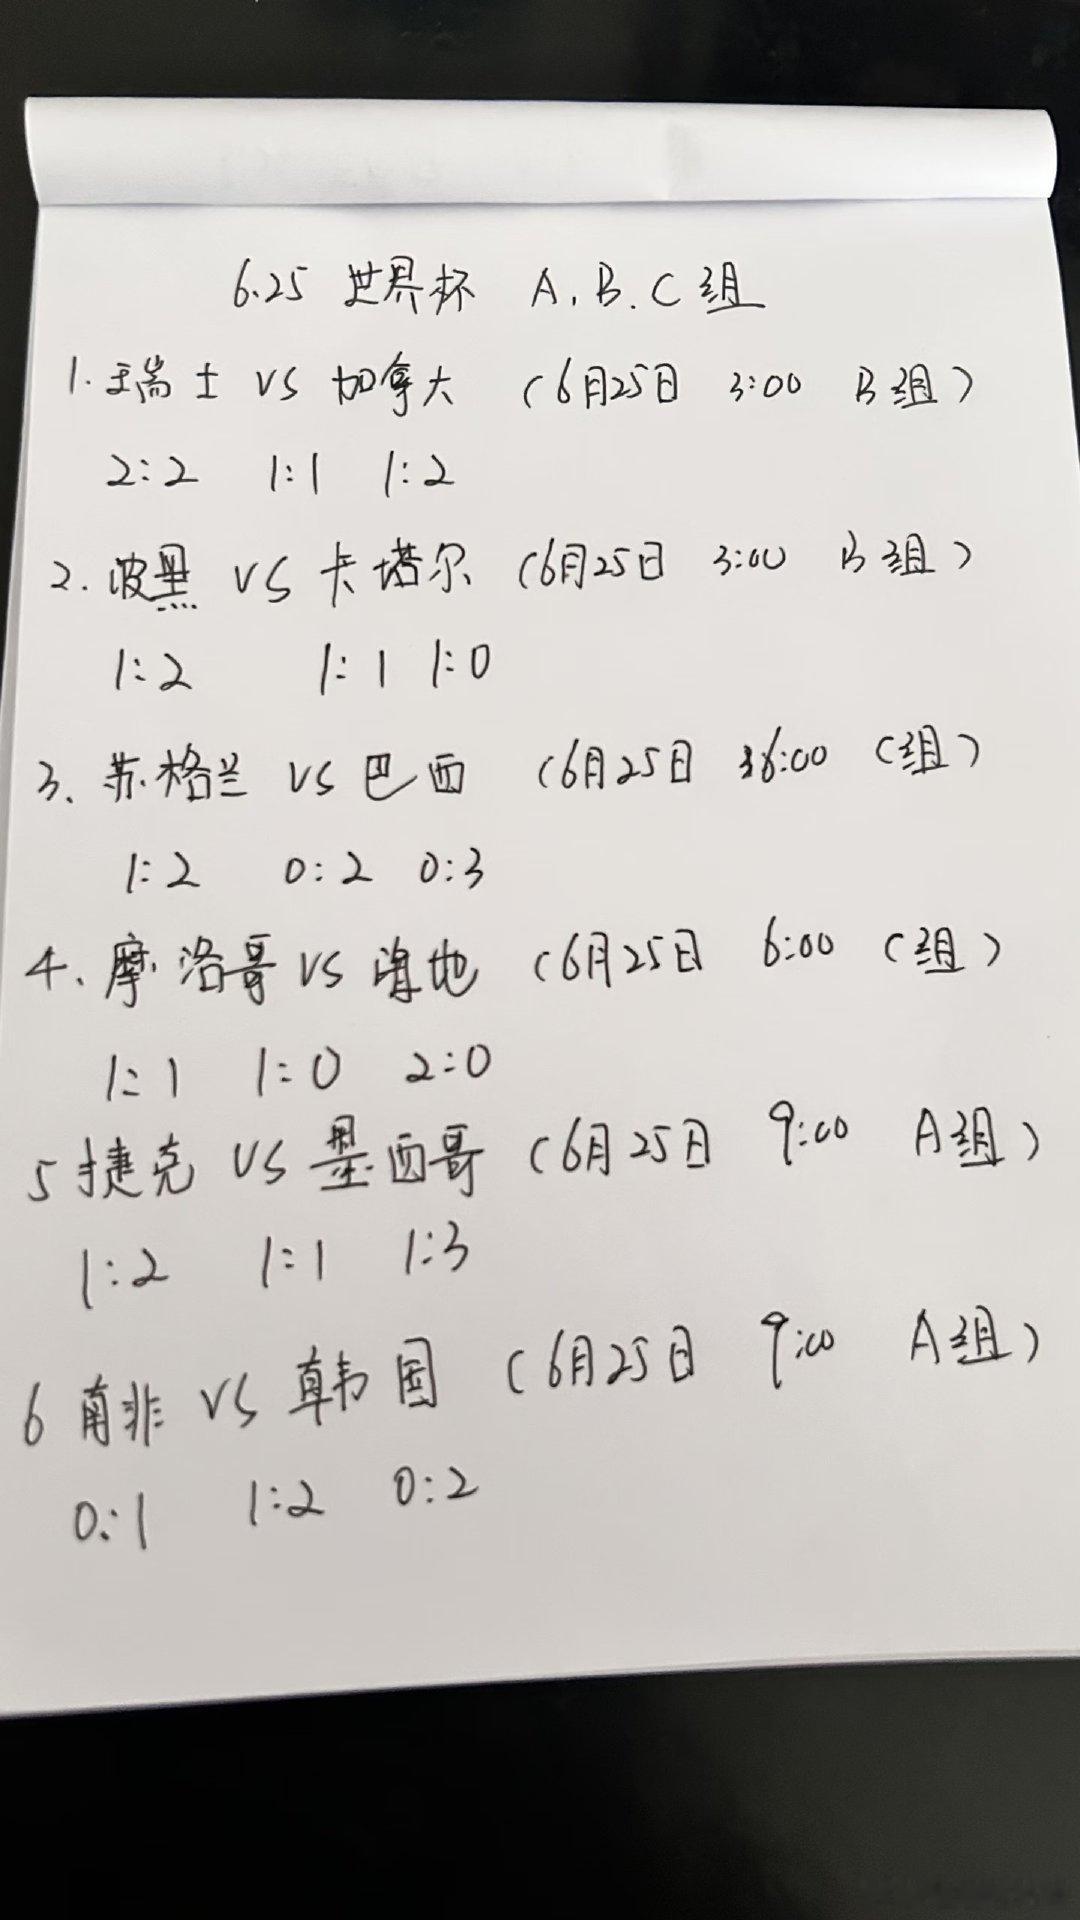 6.25 世界杯 A.B.C组
1.瑞士 VS 加拿大 (6月25日 3:00 B组)
2:2 1:1 1:2
2.波黑 VS 卡塔尔 (6月25日 3:00 B组)
1:2 1:1 1:0
3、苏格兰 VS 巴西 (6月25日 6:00 C组)
1:2 0:2 0:3
4、摩洛哥 VS 海地 (6月25日 6:00 C组)
1:1 1:0 2:0
5 捷克 VS 墨西哥 (6月25日 9:00 A组)
1:2 1:1 1:3
6 南非 VS 韩国 (6月25日 9:00 A组)
0:1 1:2 0:2